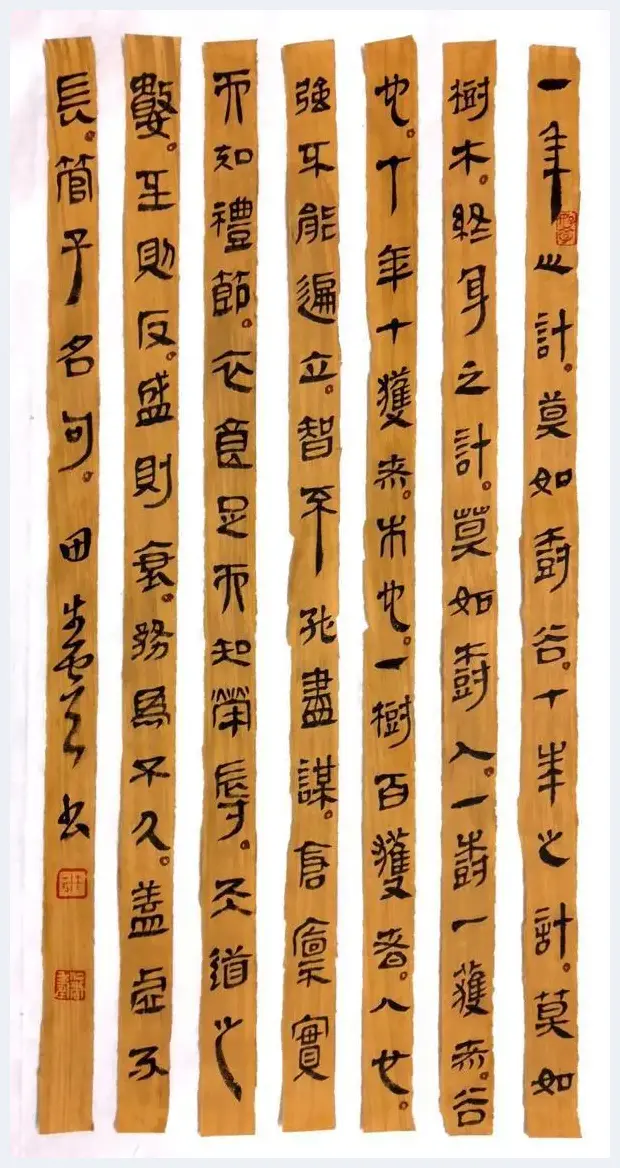 一年之計。莫如樹谷。十年之計。莫如
樹木。終身之計。莫如樹人。一樹一獲者。谷
也。十年十獲者。木也。一樹百獲者。人也。
強不能遍立。智不能盡謀。倉廩實
而知禮節。衣食足而知榮辱。天道之
數。至則反。盛則衰。務為不久。蓋虛不
長。管子名句。田 書